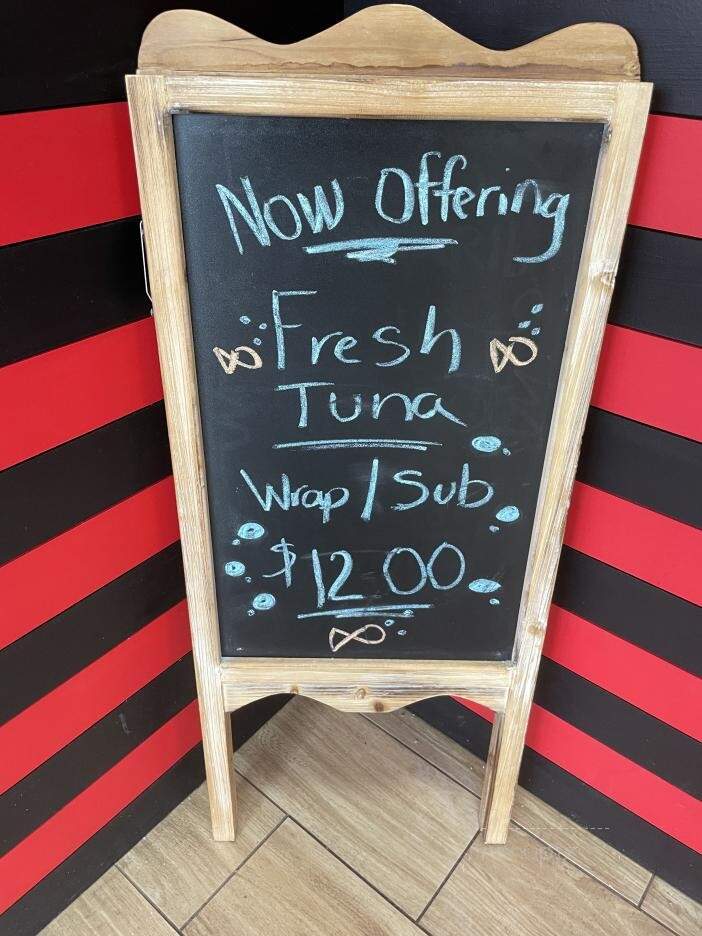 Now Offering
Fresh
Tuna
Wrap/Sub
$12.00